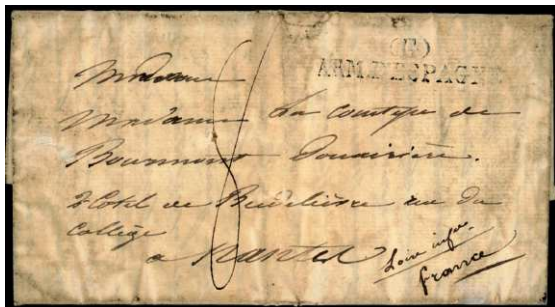 (G)
ARM. D'ESPAGNE
Madame
Madame La comtesse de
Bourmont Douairière.
hotel de rue du
Collège
a Nantes
Loire infre.
france
8